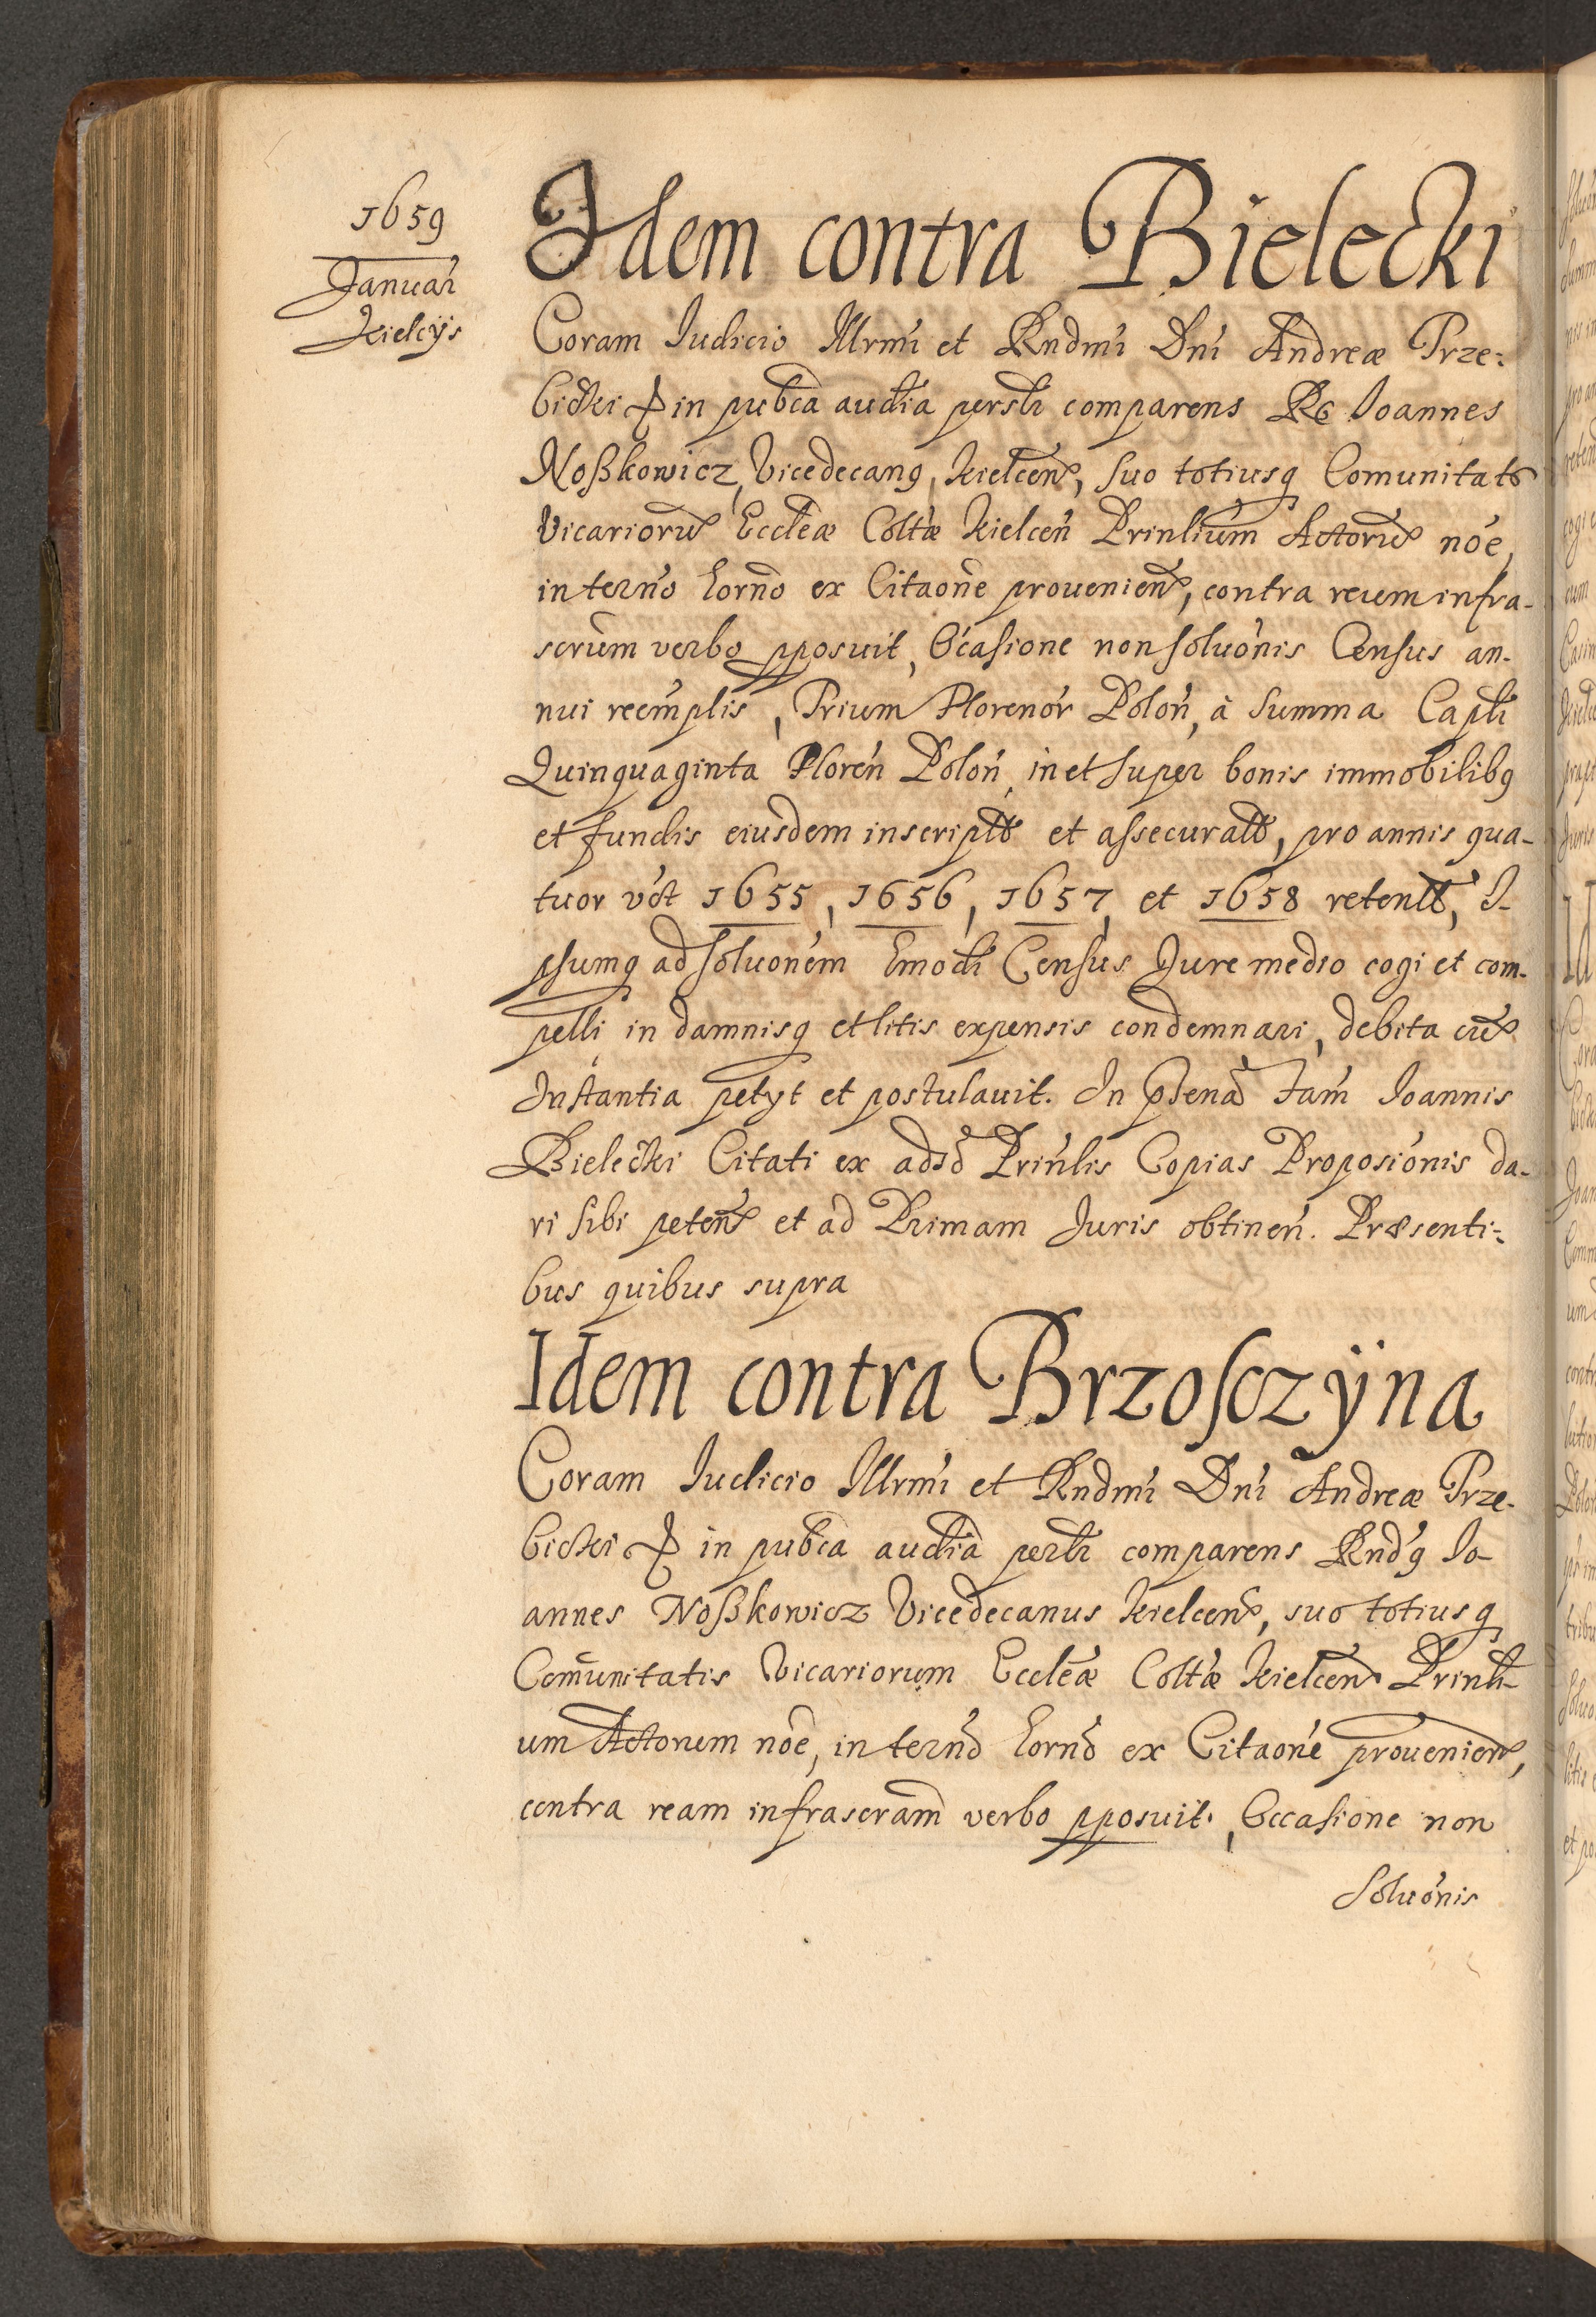 1659
Januar̄
Kielcÿs
Idem contra Bielecki
Coram Iudicio Illrmi et Rndmi Dni Andreæ Prze-
bicki & in pubca audia persli comparens R Ioannes
Noßkowicz, Vicedecanq, Kielcen, suo totiusq Comunitats
Vicariorū Eccleæ Coltæ Kielcen Prinlium Actorū nóe,
in termo horno ex Citaone prouenien, contra reum infra-
scrum verbo pposuit, Occasione non soluónis Census an-
nui reemplis, Trium Florenor Polon, à Summa Capli
Quinquaginta Floren Polon, in et super bonis immobilibq
et fundis eiusdem inscripts et assecurats, pro annis qua-
tuor vct 1655, 1656, 1657, et 1658 retents, I-
psumq ad soluonem Emodi Census Jure medio cogi et com-
pelli in damnisq et litis expensis condemnari, debita cū
Instantia petyt et postulauit. In psena Fam Ioannis
Bielecki Citati ex adso Prinlis Copias Proposiónis da-
ri sibi peten et ad Primam Juris obtinen. Præsenti-
bus quibus supra
Idem contra Brzosczÿna
Coram Iudicio Illrmi et Rndmi Dni Andreæ Prze-
bicki & in pubca audia persli comparens Rndq Io-
annes Noßkowicz Vicedecanus Kielcen, suo totiusq
Com̄unitatis Vicariorum Eccleæ Coltæ Kielcen Prinli-
um Actorum nóe, in termo horno ex Citaone prouenien,
contra ream infrascram verbo pposuit, Occasione non
Soluónis